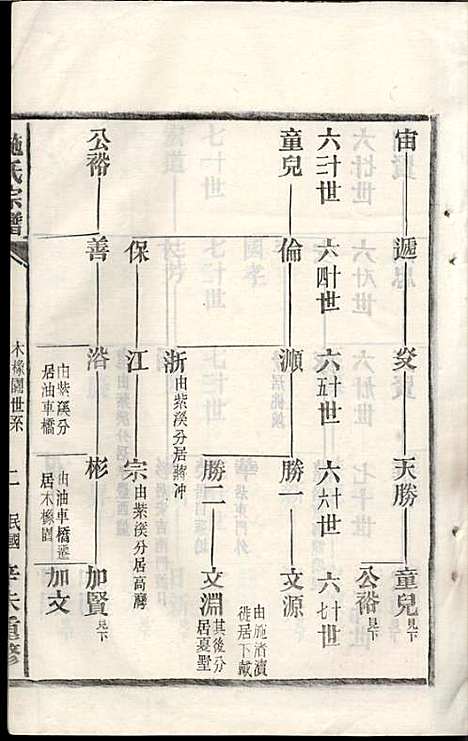 宙 遞 炎 天勝 童兒 見下
公裕 見下
六三十世 六四十世 六五十世 六六十世 六七十世
童兒 倫 灝 勝一 文源
由施濟瀆徙居下戴
勝二 文淵 其後分居夏墅
浙 由紫溪分居蔣冲
保 江 宗 由紫溪分居高灣
公裕 善 浴 彬 加賢 見下
加文
由紫溪分居油車橋
由油車橋遷居木橡園
施氏宗譜
木橡園世系
二
民國辛未重修